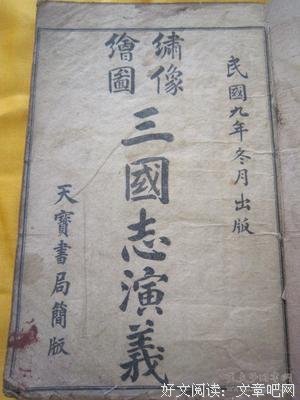 民國九年冬月出版
繡像
繪圖
三國志演義
天寶書局簡版
好文阅读：文章吧网